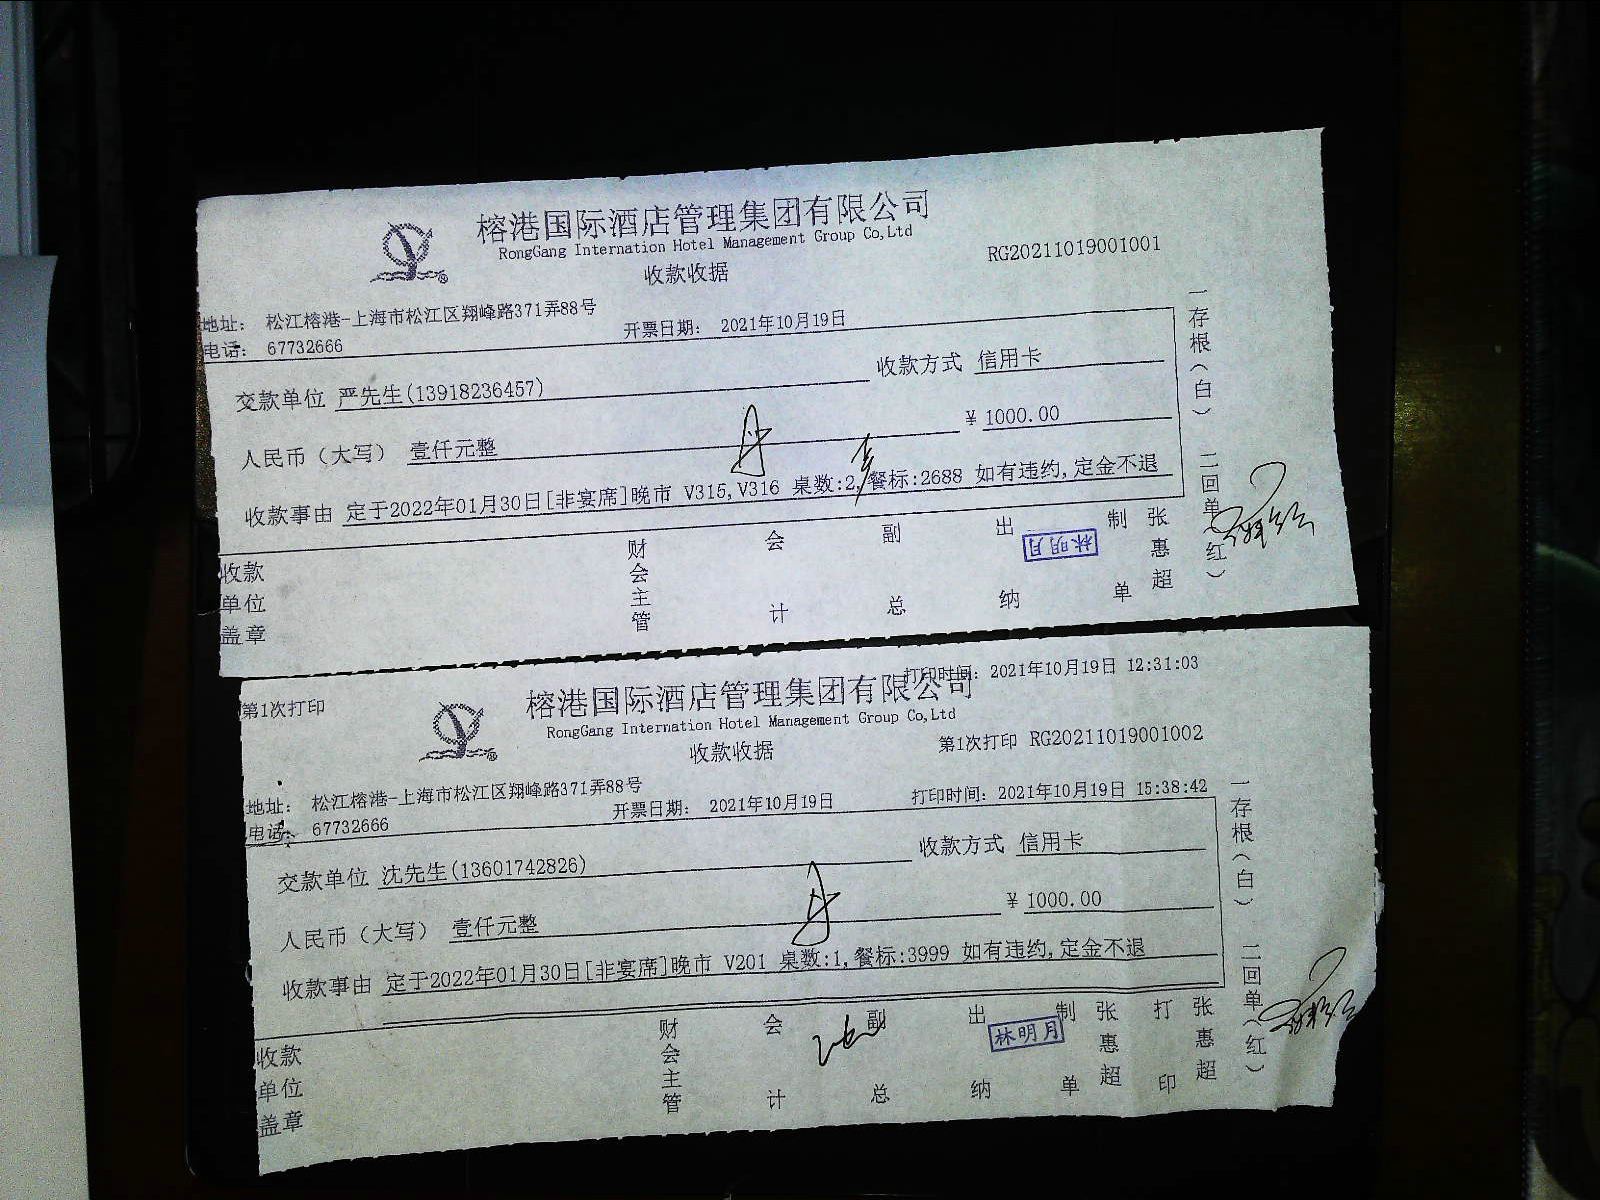 榕港国际酒店管理集团有限公司
RongGang Internation Hotel Management Group Co,Ltd
收款收据
RG20211019001001
地址： 松江榕港-上海市松江区翔峰路371弄88号
电话： 67732666
开票日期： 2021年10月19日
交款单位 严先生(13918236457)
收款方式 信用卡
人民币（大写） 壹仟元整
¥ 1000.00
收款事由 定于2022年01月30日[非宴席]晚市 V315,V316 桌数:2,餐标:2688 如有违约,定金不退
收款单位盖章
财会主管
会计
副总
出纳
林明月
制单
张惠超
一存根（白） 二回单（红）
第1次打印
打印时间: 2021年10月19日 12:31:03
榕港国际酒店管理集团有限公司
RongGang Internation Hotel Management Group Co,Ltd
收款收据
第1次打印 RG20211019001002
地址： 松江榕港-上海市松江区翔峰路371弄88号
电话： 67732666
开票日期： 2021年10月19日
打印时间: 2021年10月19日 15:38:42
交款单位 沈先生(13601742826)
收款方式 信用卡
人民币（大写） 壹仟元整
¥ 1000.00
收款事由 定于2022年01月30日[非宴席]晚市 V201 桌数:1,餐标:3999 如有违约,定金不退
收款单位盖章
财会主管
会计
副总
出纳
林明月
制单
张惠超
打印
张惠超
一存根（白） 二回单（红）